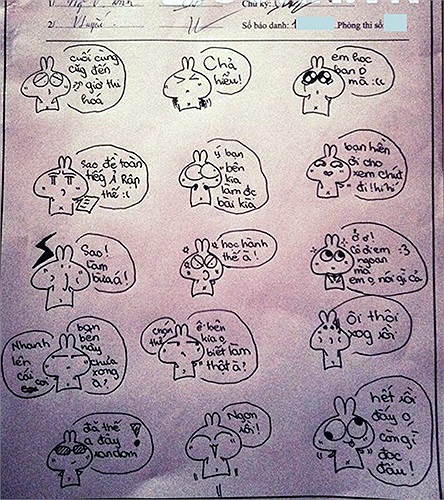 Chữ ký:
2/
Số báo danh: 1
Phòng thi số:
cuối cùng
cũg đến
giờ thi
hoá
Chả
hiểu!
em học
ban D
mà :((
Sao đề toàn
tiếg Ả Rập
thế :(
ý bạn
bên
kia
làm đc
bài kìa
bạn hiền
ơi cho
xem chút
đi! hí hí
Sao!
làm
bừa á!
học hành
thế à!
ơ ơ!
Cô ơi em :3
ngoan
mà
em o nói gì cả
Nhanh
lên
cái
coi
bạn
bên
này
chưa
xong
à?
chọn
thử
ê bên
kia o
biết làm
thật à?
Ôi thôi
xog rồi
đã thế
a đây
random
!
Ngon
rồi!
hết rồi
đấy o
còn gì
đọc
đâu!